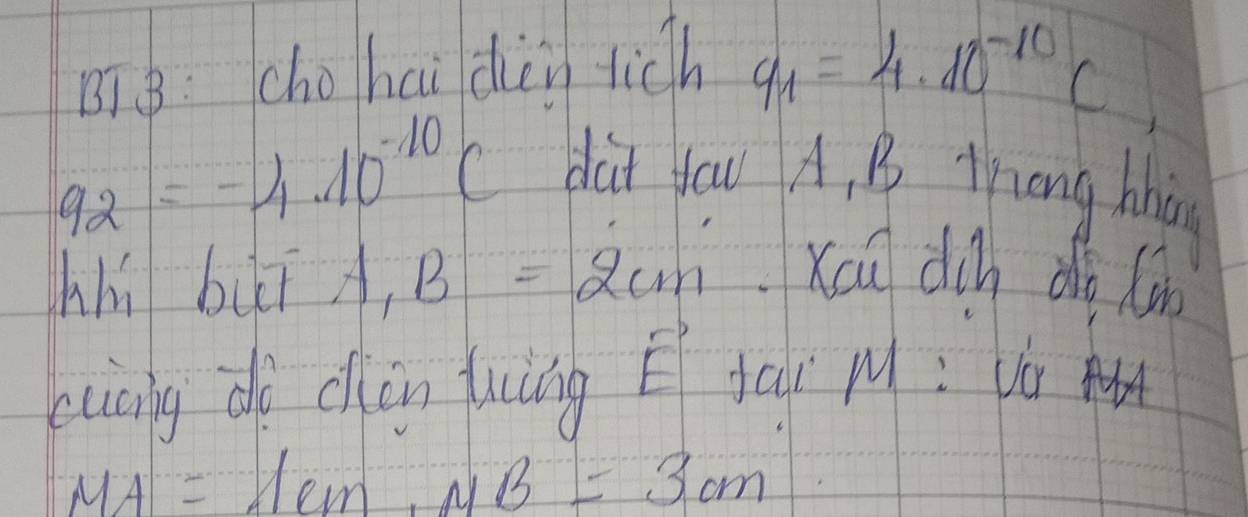 BT3: Cho hai điện tích q1 = 4.10^-10 C,
q2 = -4.10^-10 C đặt tại A, B trong không
khí biết A, B = 2cm. Xác định độ lớn
cường độ điện trường E⃗ tại M: Và
MA = 1cm, MB = 3cm